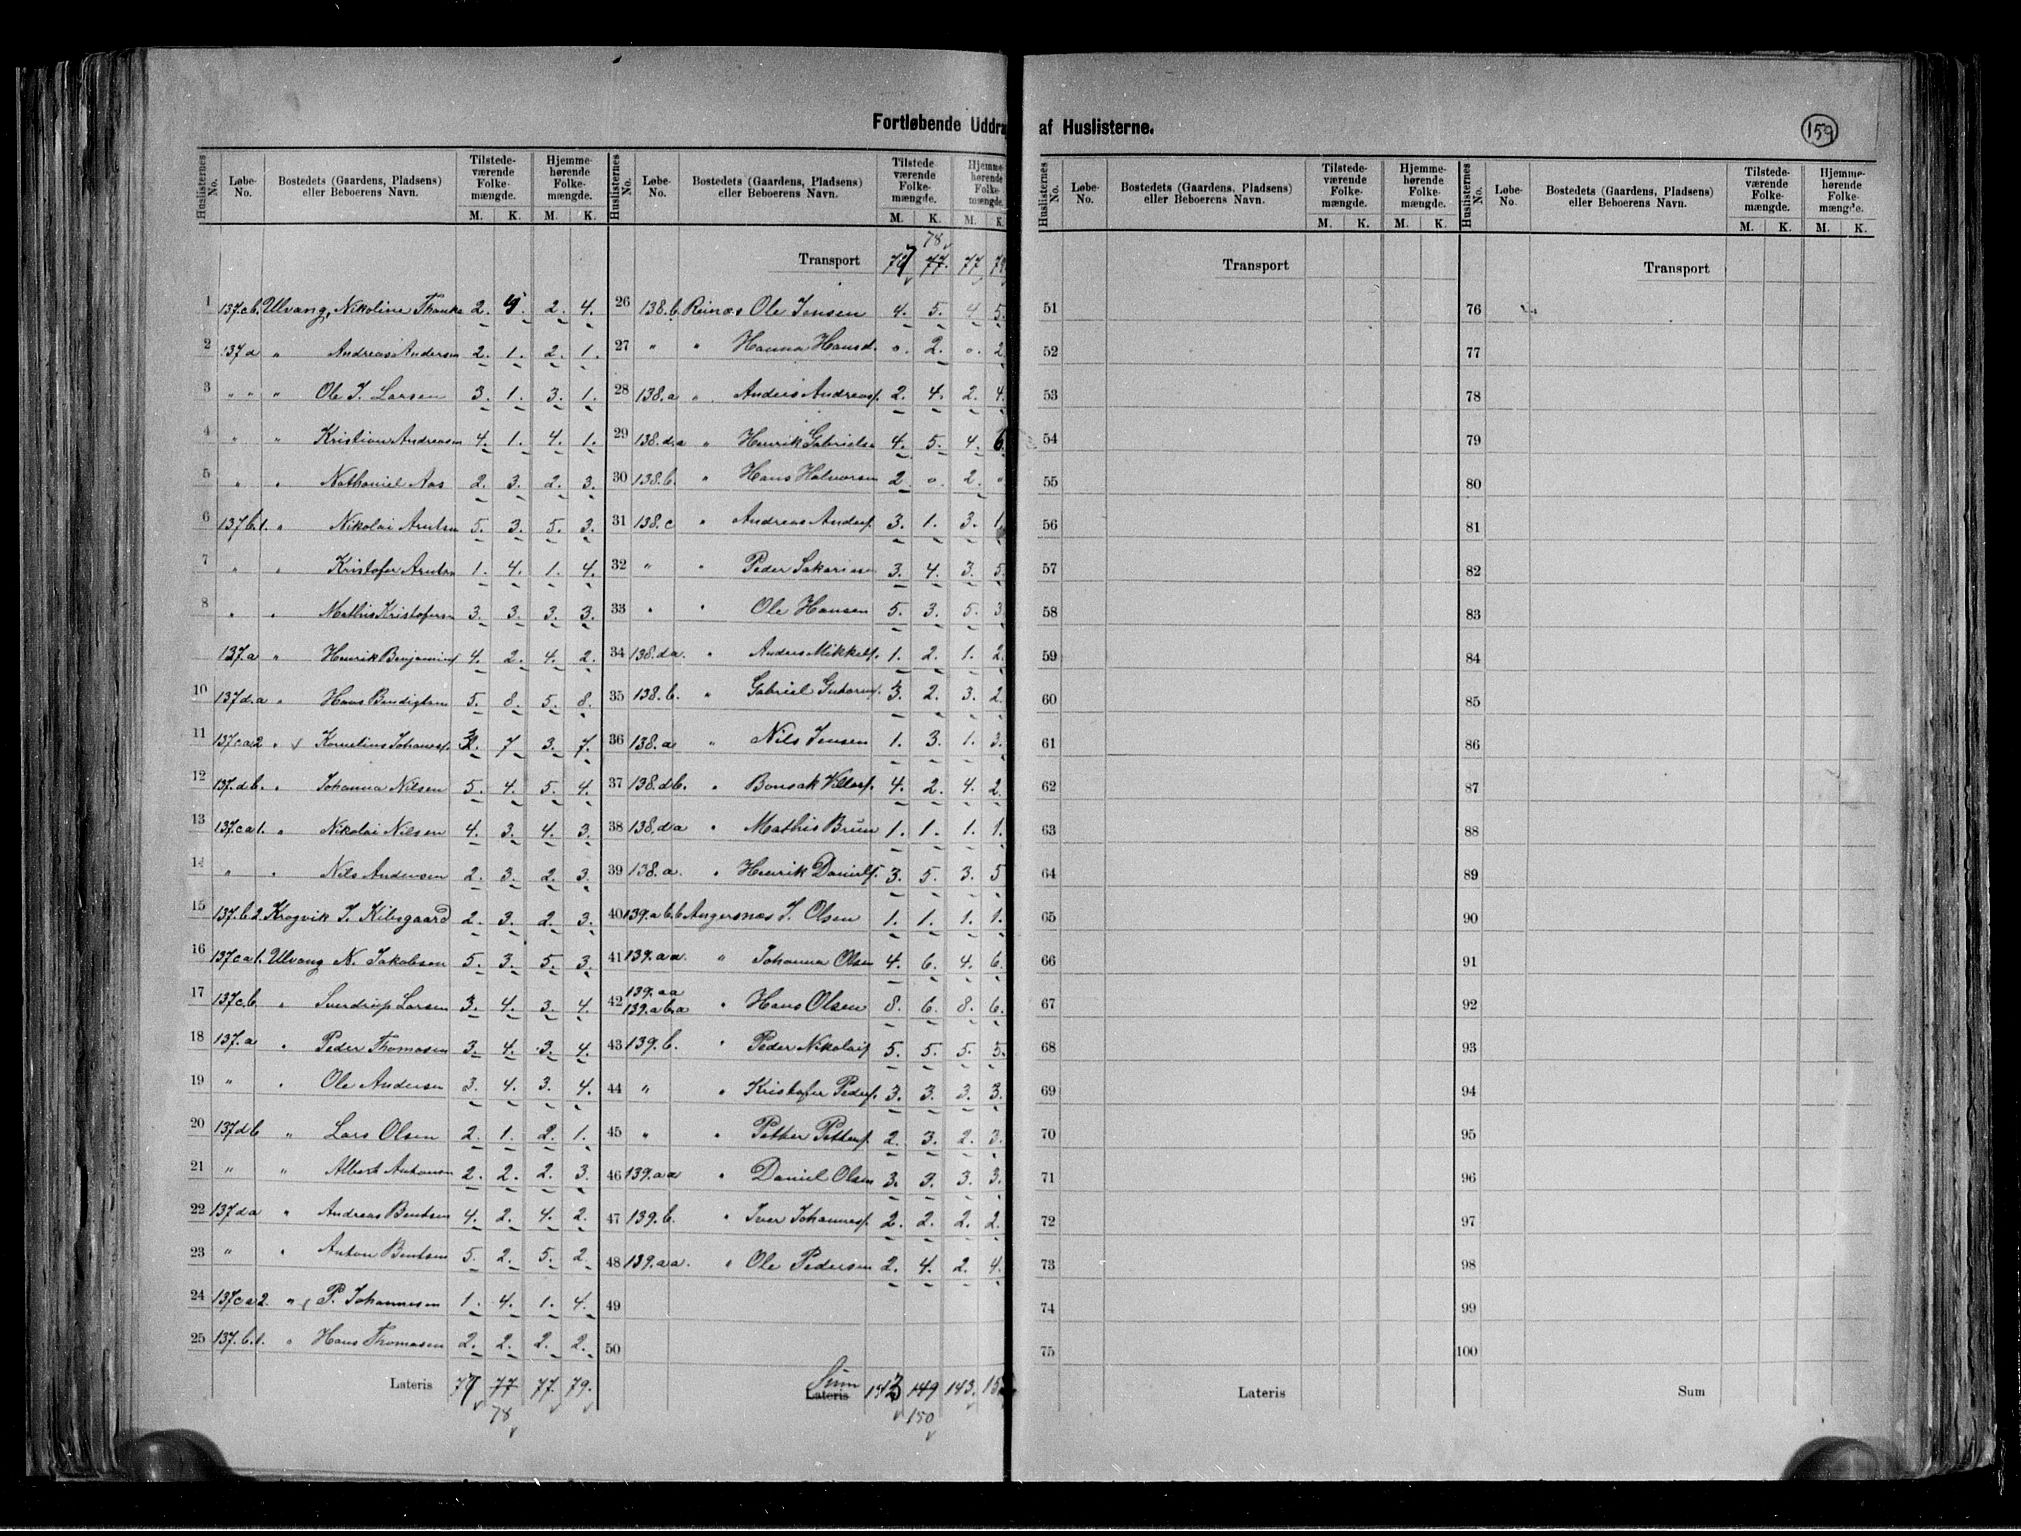 Fortløbende Uddra af Huslisterne.
159
Huslisternes No. Løbe-No. Bostedets (Gaardens, Pladsens) eller Beboerens Navn. Tilstedeværende Folkemængde. M. K. Hjemmehørende Folkemængde. M. K.
1 137.c.b. Ulvang, Nikoline 2. 2. 4.
2 137.d " Andreas Andersen 2. 1. 2. 1.
3 " " " Ole J. Larsen 3. 1. 3. 1.
4 " " Kristian Andreasen 4. 1. 4. 1.
5 " " Nathaniel Aas 2. 3. 2. 3.
6 137.b.1. " Nikolai Arntsen 5. 3. 5. 3.
7 " " Kristofer Arntsen 1. 4. 1. 4.
8 " " Mathis Kristofersen 3. 3. 3. 3.
137.a " Henrik Benjamins 4. 2. 4. 2.
10 137.d.a " Hans Bendigtsen 5. 8. 5. 8.
11 137.c.a.2 " Kornelius Johannesf. 3. 7. 3. 7.
12 137.d.b. " Johanna Nilsen 5. 4. 5. 4.
13 137.c.a.1. " Nikolai Nilsen 4. 3. 4. 3.
14 " " Nils Andersen 2. 3. 2. 3.
15 137.b.2. Krogvik J. Kilsgaard 2. 3. 2. 3.
16 137.c.a.1. Ulvang N. Jakobsen 5. 3. 5. 3.
17 137.c.b. " Sverdrup Larsen 3. 4. 3. 4.
18 137.a " Peder Thomasen 3. 4. 3. 4.
19 " " Ole Andersen 3. 4. 3. 4.
20 137.d.b " Lars Olsen 2. 1. 2. 1.
21 " " Albert Antonsen 2. 2. 2. 3.
22 137.d.a " Andreas Bentsen 4. 2. 4. 2.
23 " " Anton Bentsen 5. 2. 5. 2.
24 137.c.a.2. " P. Johannesen 1. 4. 1. 4.
25 137.b.1. " Hans Thomasen 2. 2. 2. 2.
Lateris 77 77 77. 79.
78
Huslisternes No. Løbe-No. Bostedets (Gaardens, Pladsens) eller Beboerens Navn. Tilstedeværende Folkemængde. M. K. Hjemmehørende Folkemængde. M. K.
78
Transport 77 77. 77 79
26 138.b. Reinæs Ole Jensen 4. 5. 4 5.
27 " " Hanna Hansd. 0. 2. 0. 2
28 138.a " Anders Andreasf. 2. 4. 2. 4.
29 138.d.a " Henrik Gabrielsen 4. 5. 4. 6.
30 138.b. " Hans Halvorsen 2. 0. 2.
31 138.c " Andreas Andersf. 3. 1. 3. 1.
32 " " Peder Sakariasen 3. 4. 3. 5.
33 " " Ole Hansen 5. 3. 5. 3
34 138.d.a. " Anders Mikkelsf. 1. 2. 1. 2.
35 138.b. " Gabriel 3. 2. 3. 2.
36 138.a. " Nils Jensen 1. 3. 1. 3.
37 138.d.b. " 4. 2. 4. 2.
38 138.d.a " Mathis Brun 1. 1. 1. 1.
39 138.a. " Henrik Danielsf. 3. 5. 3. 5
40 139.a.b.b Angersnæs J. Olsen 1. 1. 1. 1.
41 139.a.a. " Johanna Olsen 4. 6. 4. 6.
42 139.a.a 139.a.b.a " Hans Olsen 8. 6. 8. 6.
43 139.b. " Peder Nikolaif. 5. 5. 5. 5.
44 " " Kristofer Pedersf. 3. 3. 3. 3.
45 " " Petter Pettersf. 2. 3. 2. 3.
46 139.a.a " Daniel Olsen 3. 3. 3. 3.
47 139.b. " Iver Johannesf. 2. 2. 2. 2.
48 139.a.a. " Ole Pedersen 2. 4. 2. 4.
49
50
Sum Lateris 143 149 143. 15
150
Huslisternes No. Løbe-No. Bostedets (Gaardens, Pladsens) eller Beboerens Navn. Tilstedeværende Folkemængde. M. K. Hjemmehørende Folkemængde. M. K.
Transport
51
52
53
54
55
56
57
58
59
60
61
62
63
64
65
66
67
68
69
70
71
72
73
74
75
Lateris
Huslisternes No. Løbe-No. Bostedets (Gaardens, Pladsens) eller Beboerens Navn. Tilstedeværende Folkemængde. M. K. Hjemmehørende Folkemængde. M. K.
Transport
76
77
78
79
80
81
82
83
84
85
86
87
88
89
90
91
92
93
94
95
96
97
98
99
100
Sum